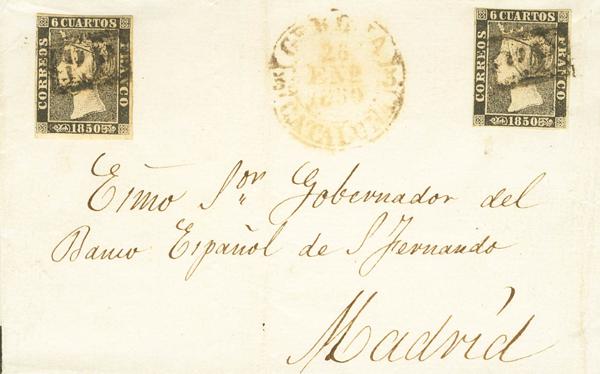 6 CUARTOS
CORREOS
FRANCO
1850
GERONA
26
ENE
1850
CATALUÑA
6 CUARTOS
CORREOS
FRANCO
1850
Exmo Sor Gobernador del
Banco Español de S Fernando
Madrid